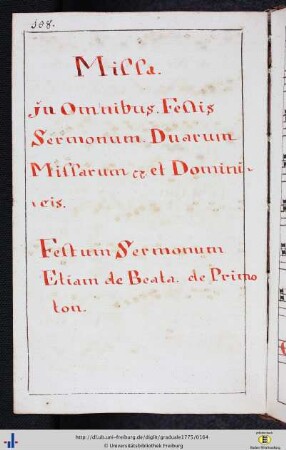 198.
Missa.
in Omnibus. Festis
Sermonum. Duarum
Missarum &c et Domini-
-cis.
Festum Sermonum
Etiam de Beata. de Primo
ton.
http://dl.ub.uni-freiburg.de/diglit/graduale1775/0184
© Universitätsbibliothek Freiburg